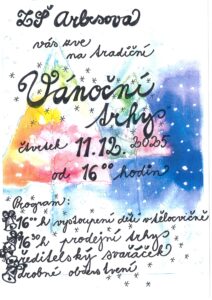 ZŠ Arbesova
vás zve
na tradiční
Vánoční
trhy
čtvrtek 11.12. 2025
od 16⁰⁰ hodin
Program:
16⁰⁰h vystoupení dětí v tělocvičně
16³⁰h prodejní trhy
ředitelský svařáček
drobné občerstvení